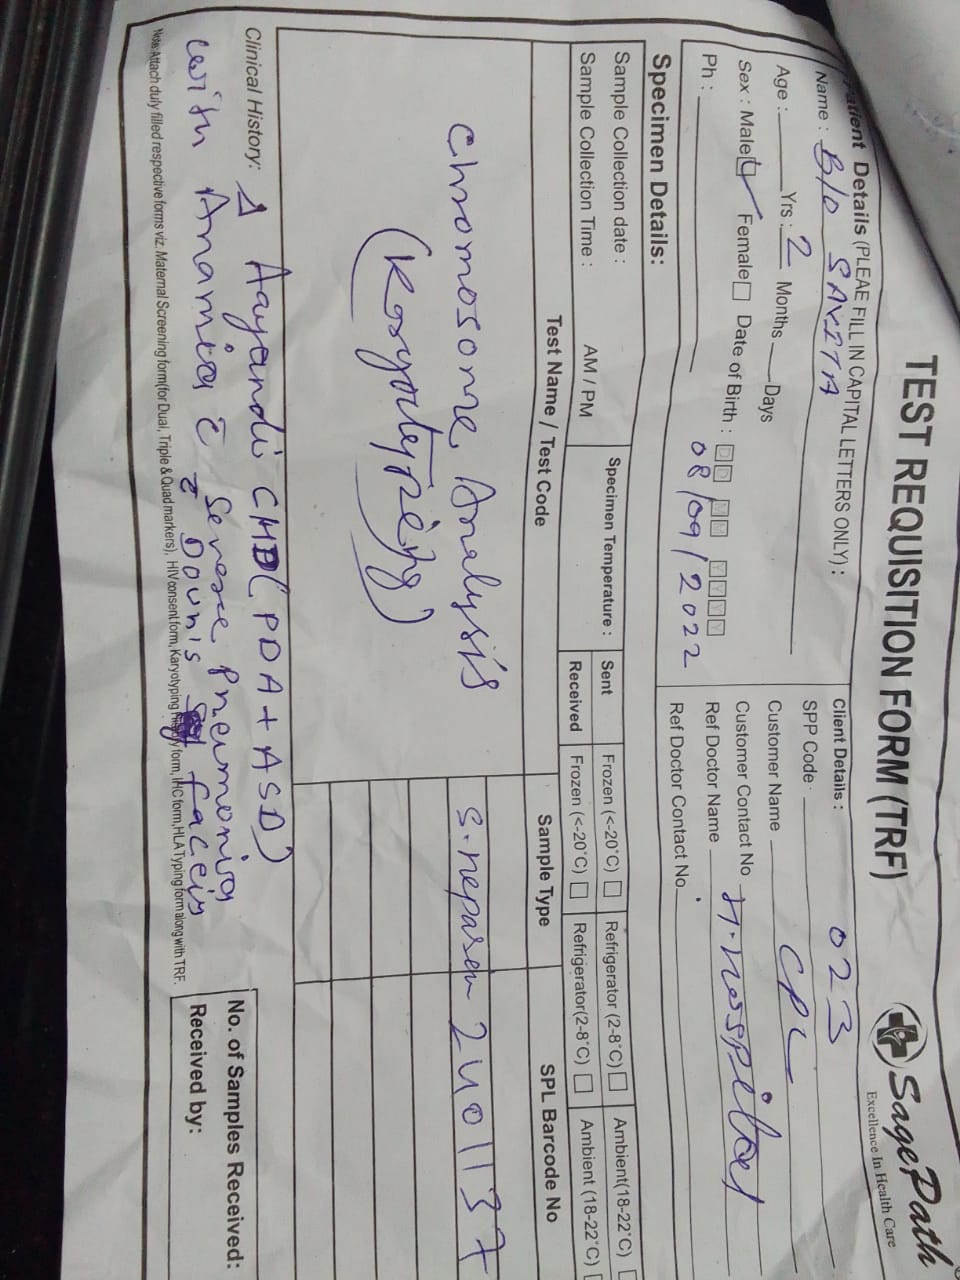 TEST REQUISITION FORM (TRF)
SagePath
Excellence In Health Care
Patient Details (PLEAE FILL IN CAPITAL LETTERS ONLY) :
Name : B/o SAVITA
Age : Yrs : 2 Months Days
Sex : Male Female Date of Birth : DD MM YYYY
08/09/2022
Ph :
Client Details : 023
SPP Code
Customer Name CPL
Customer Contact No
Ref Doctor Name H. Hospital
Ref Doctor Contact No.
Specimen Details:
Sample Collection date :
Sample Collection Time : AM / PM
Specimen Temperature :
Sent Frozen (<-20°C) Refrigerator (2-8°C) Ambient(18-22°C)
Received Frozen (<-20°C) Refrigerator(2-8°C) Ambient (18-22°C)
Test Name / Test Code Sample Type SPL Barcode No
Chromosome Analysis 2401137
(Karyotyping)
Clinical History: Δ CHD (PDA + ASD)
with c̄ Severe Pneumonia
c̄ Down's faceis
Note: Attach duly filled respective forms viz. Maternal Screening form(for Dual, Triple & Quad markers), HIV consent form, Karyotyping form, IHC form, HLA Typing form along with TRF.
No. of Samples Received:
Received by: